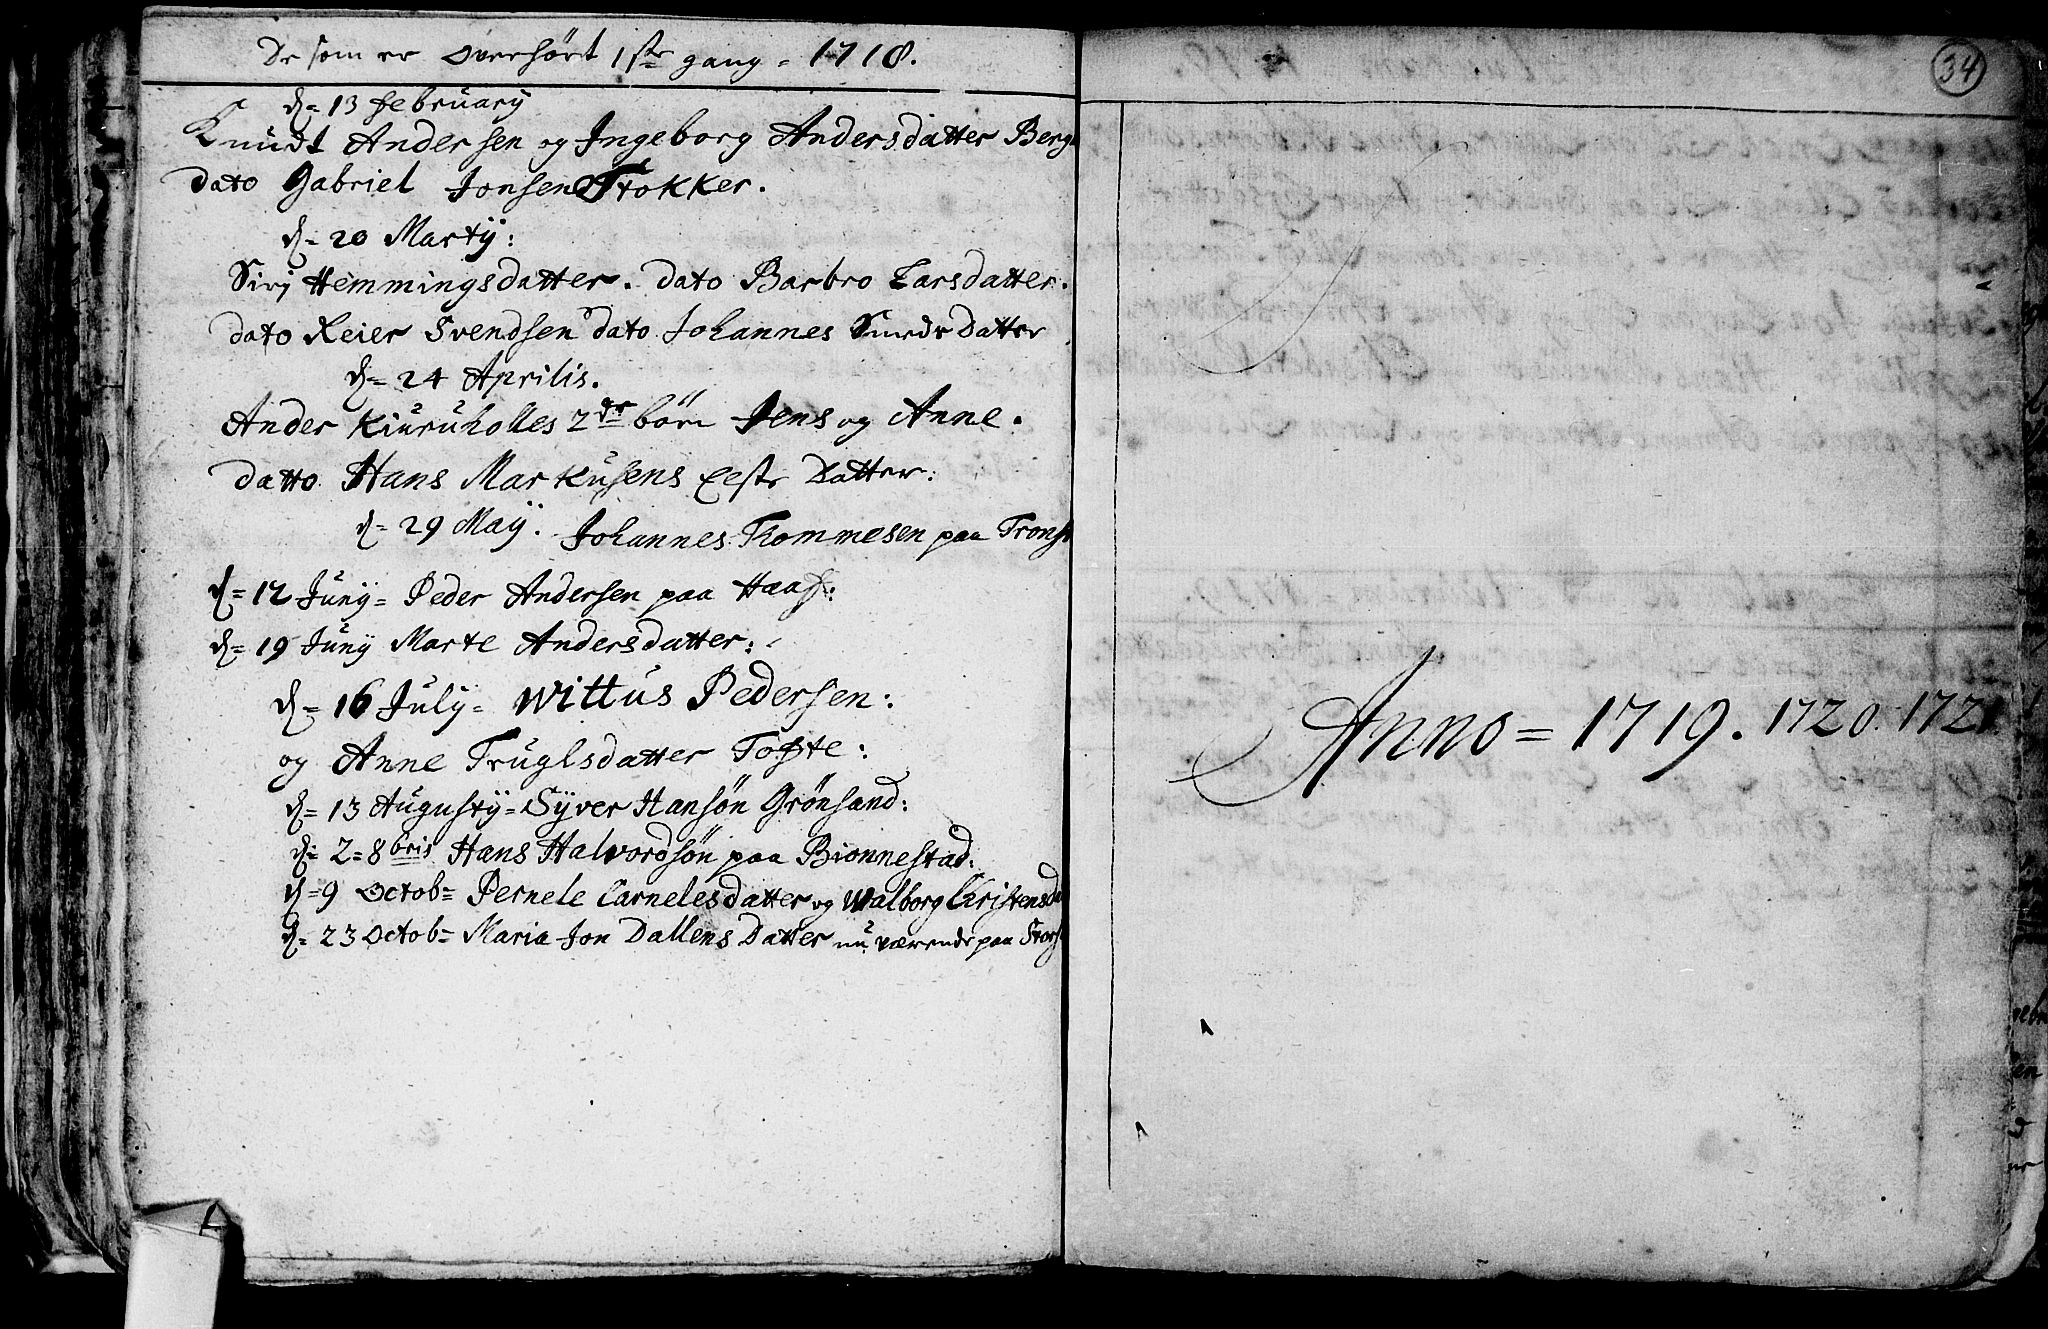 De som er overhørt 1ste gang = 1718.
d= 13 february
Knudt Andersen og Ingeborg Andersdatter Berg
dato Gabriel Jonsen Stokker.
d= 20 Martÿ:
Siri Hemmingsdatter. dato Barbro Larsdatter.
dato Reier Svendsen dato Johannes Smeds datter
d= 24 Aprilis.
Ander Kiuruholles 2de børn Jens og Anne.
datto Hans Markusens Datter:
d= 29 Maÿ. Johannes Thommesen paa Trons
d= 12 Junÿ = Peder Andersen paa
d= 19 Junÿ Marte Andersdatter:
d= 16 July = Wittus Pedersen:
og Anne Truglsdatter Tofte:
d= 13 Augustÿ = Syver Hansøn Grønsand:
d= 2 = 8bris Hans Halvordsøn paa Bionnestad:
d= 9 Octob= Pernele Carnelesdatter og Walborg Christensda
d= 23 Octob= Maria Jon Dallens Datter nu værende paa Stors
34
Anno = 1719. 1720. 1721